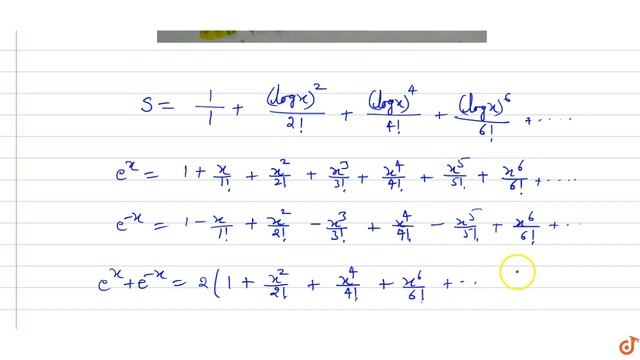 S = 1/1 + (logx)²/2! + (logx)⁴/4! + (logx)⁶/6! + ....
eˣ = 1 + x/1! + x²/2! + x³/3! + x⁴/4! + x⁵/5! + x⁶/6! + ....
e⁻ˣ = 1 - x/1! + x²/2! - x³/3! + x⁴/4! - x⁵/5! + x⁶/6! + ..
eˣ + e⁻ˣ = 2 ( 1 + x²/2! + x⁴/4! + x⁶/6! + ..